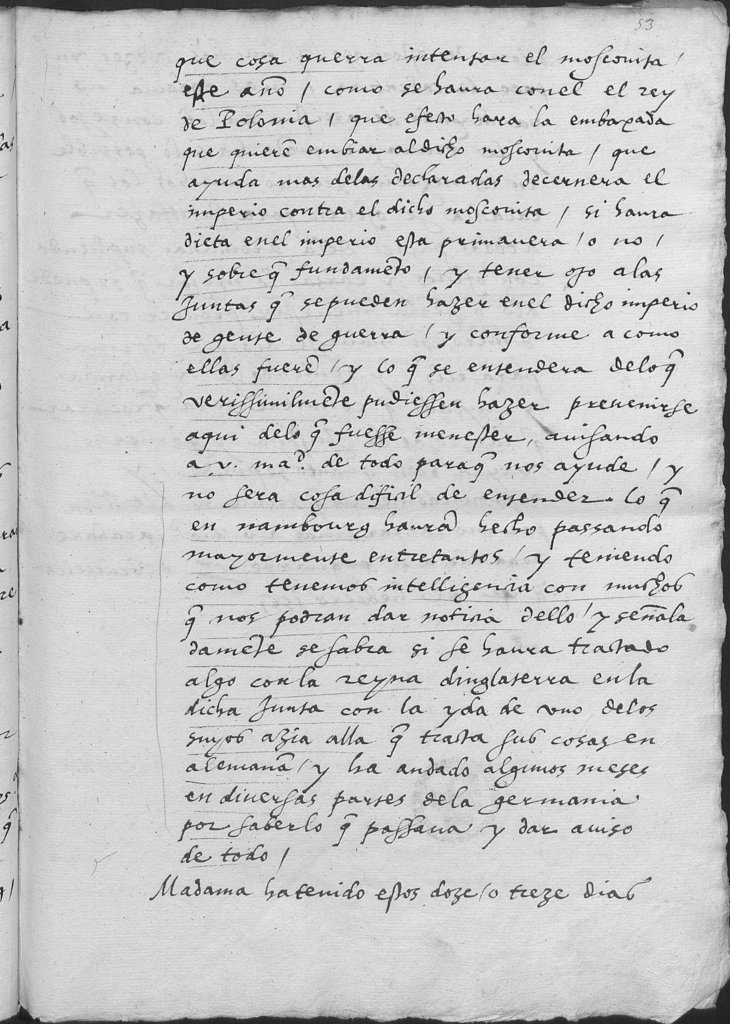 53
que cosa querra intentar el mosconita /
este año / como se haura con el el rey
de Polonia / que efesto hara la embaxada
que quierē embiar al dicho mosconita / que
ayuda mas delas declaradas decernera el
imperio contra el dicho mosconita / si haura
dieta enel imperio esta primauera / o no /
y sobre q̄ fundamēto / y tener ojo a las
Juntas q̄ se pueden hazer enel dicho imperio
de gente de guerra / y conforme a como
ellas fuerē / y lo q̄ se entendera delo q̄
verissimilmēte pudiessen hazer preuenirse
aqui delo q̄ fuesse menester, auisando
a v. mad. de todo paraq̄ nos ayude / y
no sera cosa dificil de entender lo q̄
en nambourg haurā hecho passando
mayormente entretantos / y teniendo
como tenemos intelligencia con muchos
q̄ nos podran dar noticia dello / y señala
damēte se sabra si se haura tractado
algo con la reyna dinglaterra en la
dicha Junta con la yda de vno delos
suyos azia alla q̄ tracta sus cosas en
alemanā / y ha andado algunos meses
en diuersas partes dela germania
por saber lo q̄ passaua y dar auiso
de todo /
Madama ha tenido estos doze / o treze dias